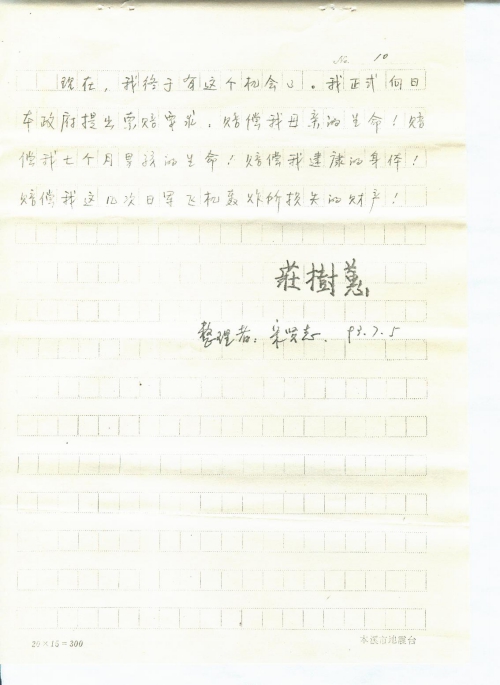 No. 10
现在，我终于有这个机会了。我正式向日
本政府提出索赔要求，赔偿我母亲的生命！赔
偿我七个月男孩的生命！赔偿我健康的身体！
赔偿我这几次日军飞机轰炸所损失的财产！
莊樹蕙
整理者：宋贤志. 93.7.5
20×15=300
本溪市電台